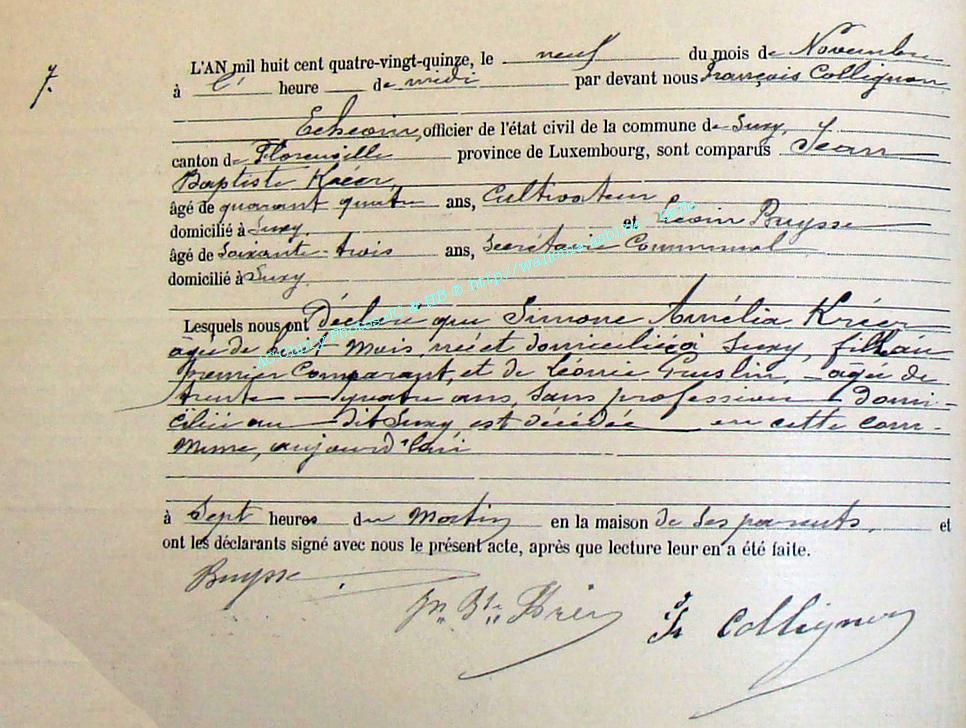 7.
L'AN mil huit cent quatre-vingt-quinze, le neuf du mois de Novembre
à l' heure de midi par devant nous François Collignon
Echevin, officier de l'état civil de la commune de Suxy,
canton de Florenville province de Luxembourg, sont comparus Jean
Baptiste Kréer,
âgé de quarant quatre ans, Cultivateur
domicilié à Suxy. et Buysse
âgé de Soixante-trois ans, Secrétaire Communal
domicilié à Suxy.
Lesquels nous ont Déclaré que Simone Amélia Kréer
âgée de huit mois, née et domiciliée à Suxy, fille du
premier Comparant, et de Léonie Guslin, âgée de
trente quatre ans, sans profession Domi-
ciliée au dit Suxy est décédée en cette com-
mune, aujourd'hui
à Sept heures du Matin en la maison de Ses parents, et
ont les déclarants signé avec nous le présent acte, après que lecture leur en a été faite.
Buysse
Jn Bte Krier
Fr Collignon